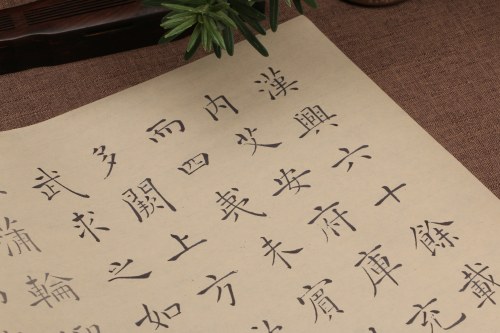 漢興六十餘載
內艾安府庫充
而四夷未賓
多闕上方
武求之如
蒲輪